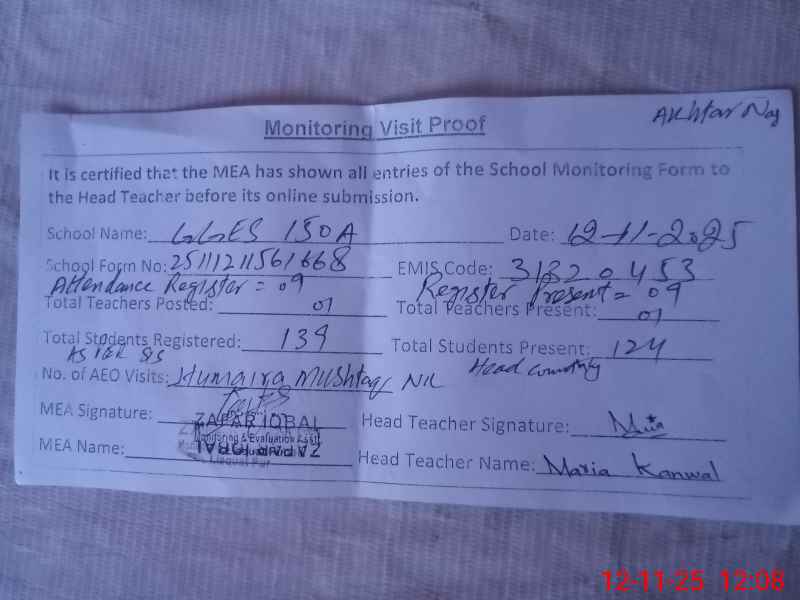 Akhtar Naz
Monitoring Visit Proof
It is certified that the MEA has shown all entries of the School Monitoring Form to
the Head Teacher before its online submission.
School Name: GGES 150A Date: 12-11-2025
School Form No: 25111211561668 EMIS Code: 31320453
Attendance Register = 09 Register Present = 09
Total Teachers Posted: 01 Total Teachers Present: 01
Total Students Registered: 139 Total Students Present: 124
AS PER SIS
No. of AEO Visits: Humaira Mushtaq NIL Head
MEA Signature: ZAFAR IQBAL Head Teacher Signature:
Monitoring & Evaluation Asstt
MEA Name: ZAFAR IQBAL Head Teacher Name: Maria Kanwal
12-11-25 12:08